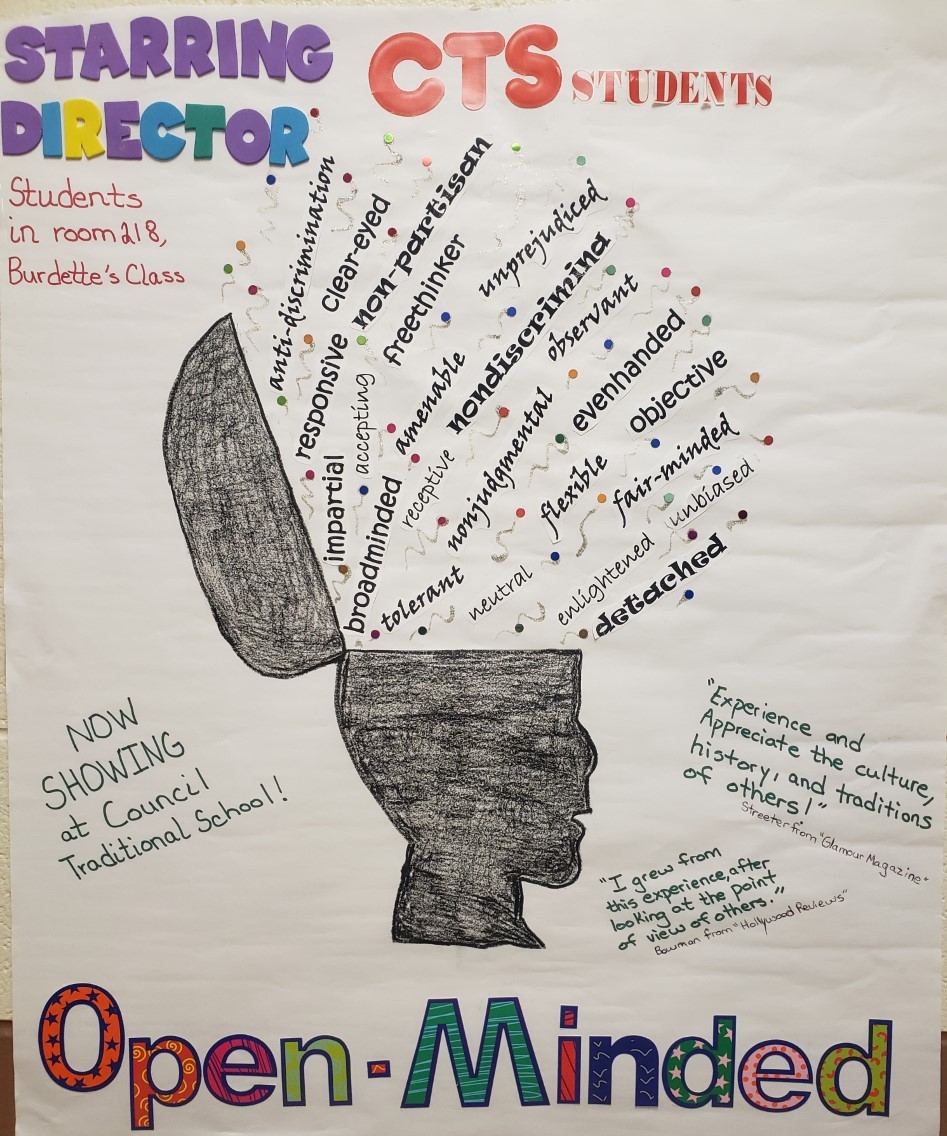 STARRING
CTS STUDENTS
DIRECTOR
Students
in room 218,
Burdette's Class
anti-discrimination
clear-eyed
non-partisan
responsive
freethinker
unprejudiced
impartial
accepting
amenable
nondiscrimina
observant
broadminded
receptive
nonjudgmental
evenhanded
objective
tolerant
neutral
flexible
fair-minded
enlightened
unbiased
detached
NOW
SHOWING
at Council
Traditional School!
"Experience and
Appreciate the culture,
history, and traditions
of others!"
Streeter from "Glamour Magazine"
"I grew from
this experience, after
looking at the point
of view of others."
Bowman from "Hollywood Reviews"
Open-Minded